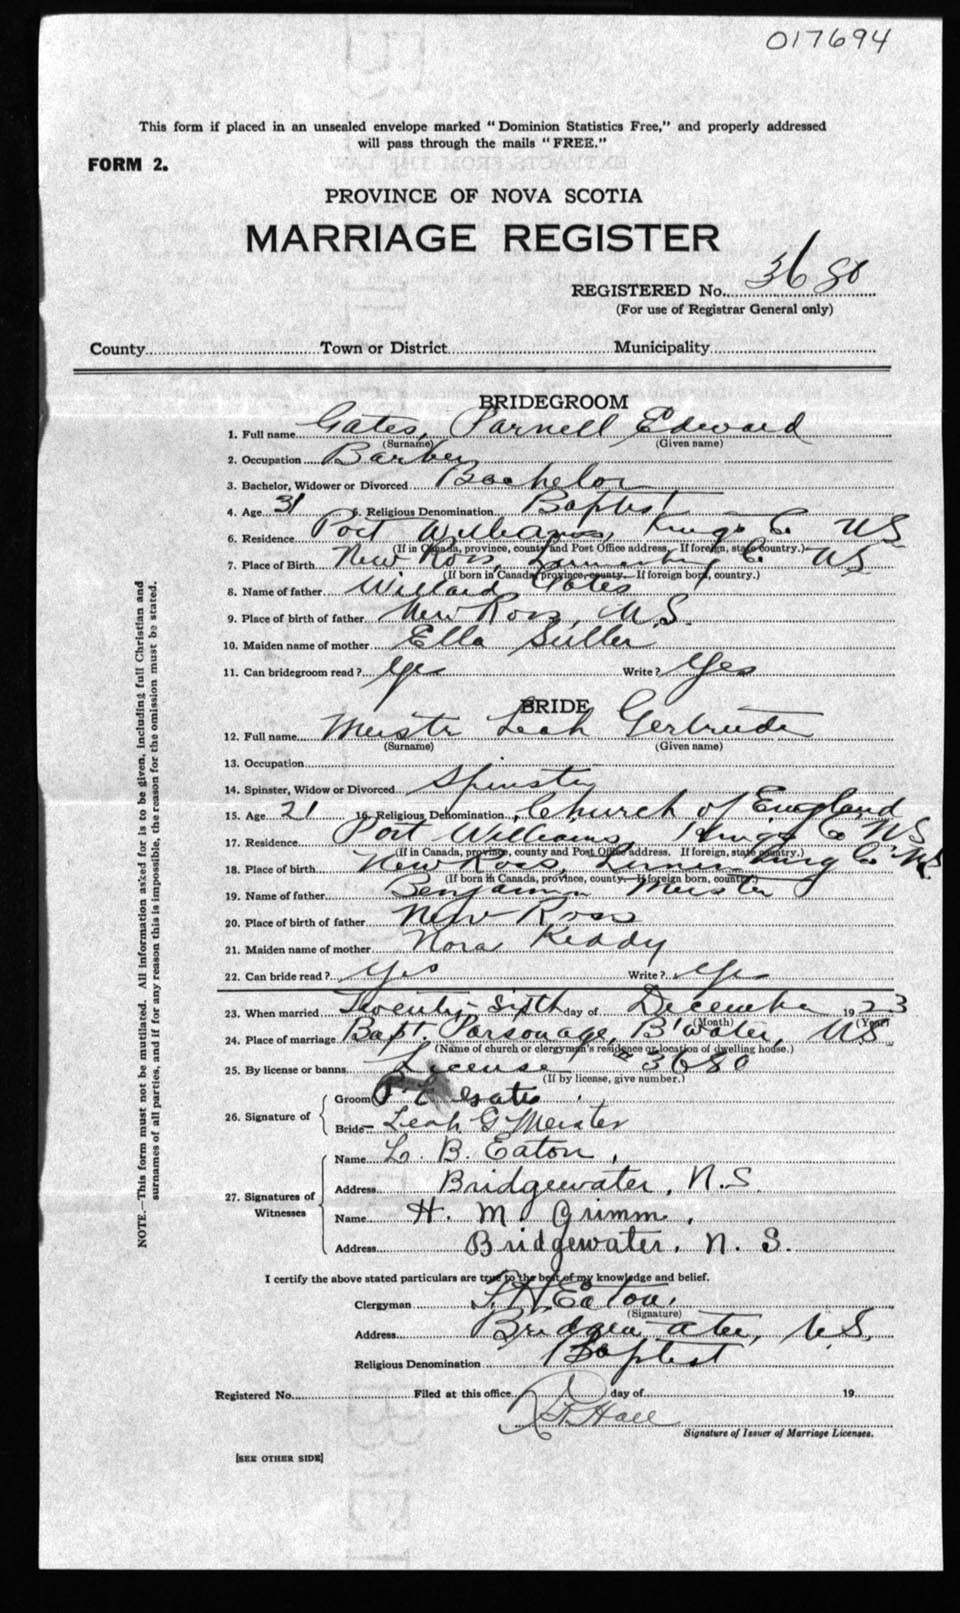 017694
This form if placed in an unsealed envelope marked "Dominion Statistics Free," and properly addressed
will pass through the mails "FREE."
FORM 2.
PROVINCE OF NOVA SCOTIA
MARRIAGE REGISTER
REGISTERED No. 3680
(For use of Registrar General only)
County Town or District Municipality
BRIDEGROOM
1. Full name Gates, Parnell Edward
(Surname) (Given name)
2. Occupation Barber
3. Bachelor, Widower or Divorced Bachelor
4. Age 31 5. Religious Denomination Baptist
6. Residence Port Williams, Kings Co. NS
(If in Canada, province, county and Post Office address. If foreign, state country.)
7. Place of Birth New Ross, Lunenburg Co. NS
(If born in Canada, province, county. If foreign born, country.)
8. Name of father Willard Gates
9. Place of birth of father New Ross, N.S.
10. Maiden name of mother Ella
11. Can bridegroom read? Yes Write? Yes
BRIDE
12. Full name Meister Leah Gertrude
(Surname) (Given name)
13. Occupation
14. Spinster, Widow or Divorced Spinster
15. Age 21 16. Religious Denomination Church of England
17. Residence Port Williams Kings Co NS
(If in Canada, province, county and Post Office address. If foreign, state country.)
18. Place of birth New Ross, Lunenburg Co NS
(If born in Canada, province, county. If foreign born, country.)
19. Name of father Benjamin Meister
20. Place of birth of father New Ross
21. Maiden name of mother Nora Keddy
22. Can bride read? Yes Write? Yes
23. When married Twenty-Sixth day of December 1923
(Month) (Year)
24. Place of marriage Bapt. Parsonage, B'water, NS
(Name of church or clergymen's residence or location of dwelling house.)
25. By license or banns License # 3680
(If by license, give number.)
26. Signature of
Groom P E Gates
Bride Leah G Meister
27. Signatures of Witnesses
Name L. B. Eaton,
Address Bridgewater, N.S.
Name H. M. Grimm.
Address Bridgewater. N. S.
I certify the above stated particulars are true to the best of my knowledge and belief.
Clergyman Eaton.
(Signature)
Address Bridgewater, N.S.
Religious Denomination Baptist
Registered No. Filed at this office day of 19
Hall
Signature of Issuer of Marriage Licenses.
[SEE OTHER SIDE]
NOTE.—This form must not be mutilated. All information asked for is to be given, including full Christian and
surnames of all parties, and if for any reason this is impossible, the reason for the omission must be stated.